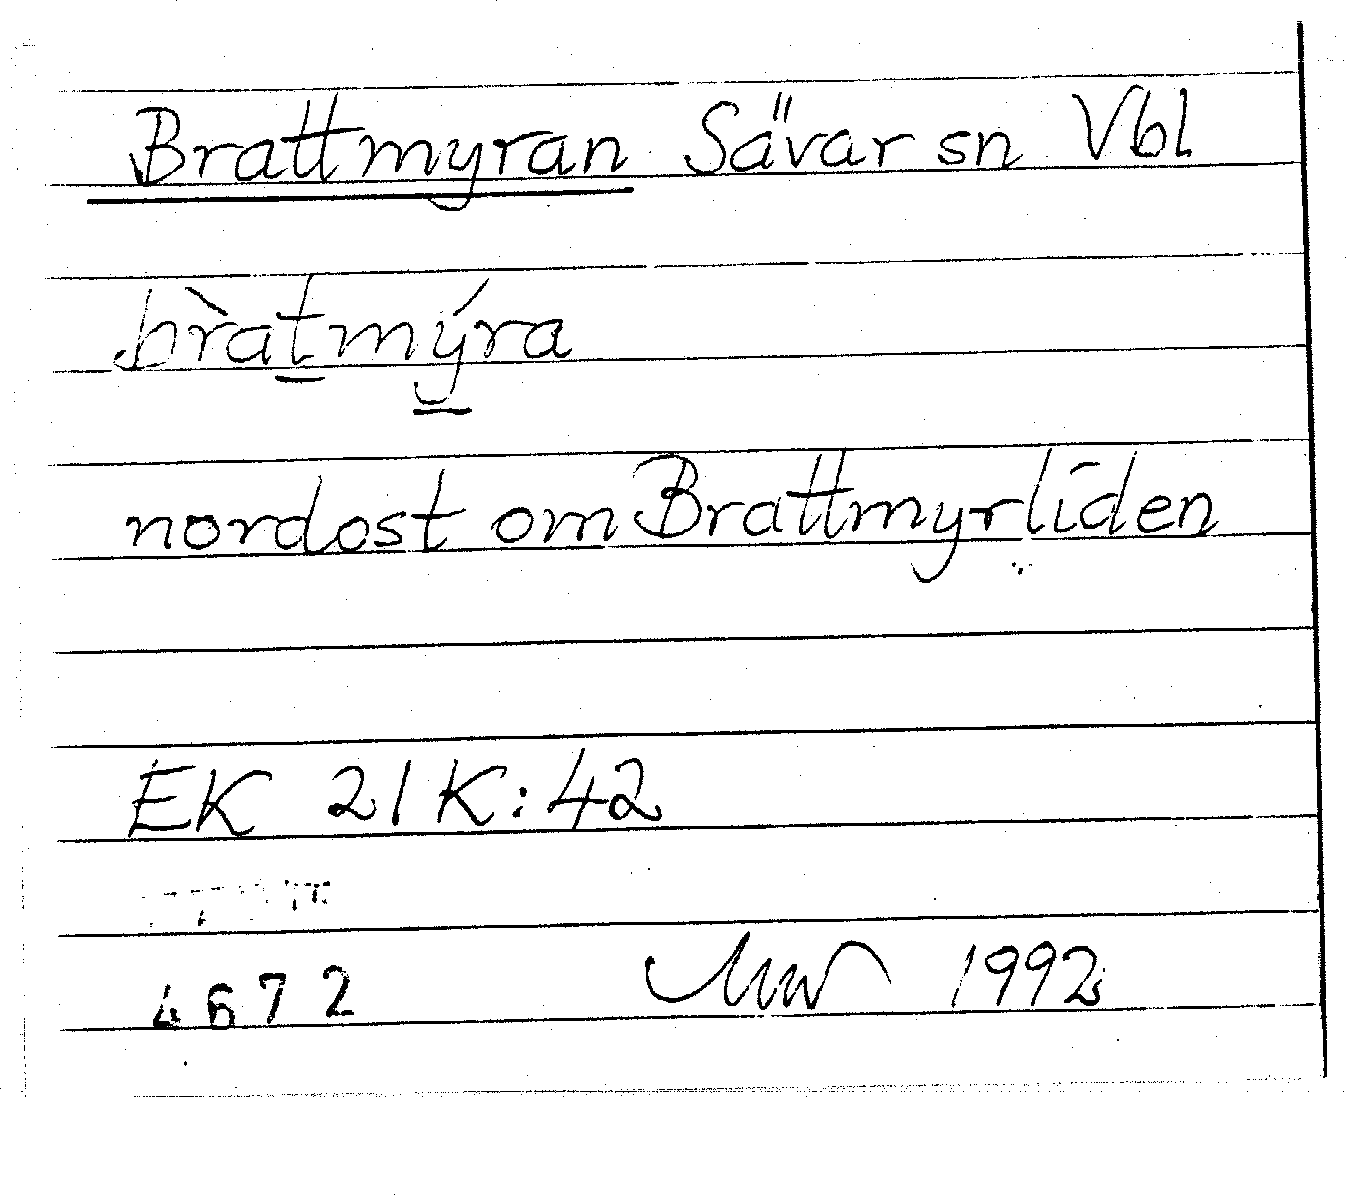 Brattmyran Sävar sn Vbl
br̀at̲mý̲ra
nordost om Brattmyrliden
EK 21K:42
4672 1992